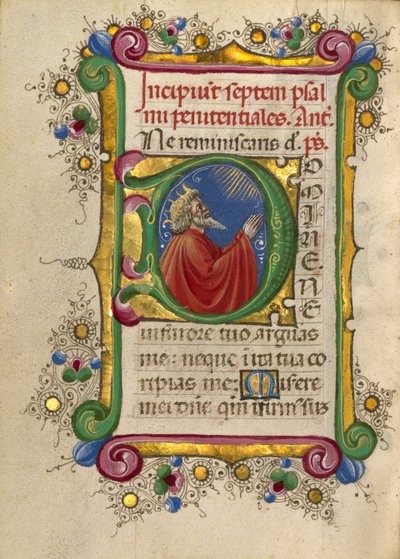 Incipiūt septem psal
mi penitentiales. Ant̃.
Ne reminiscaris d. ps̃.
DOMINE. NE
in furore tuo arguas
me: neque in ira tua co
ripias me: Misere
mei dñe qm̃ infirmꝰ